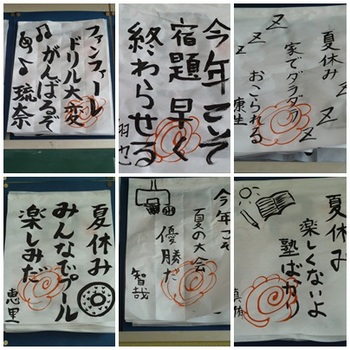 ファンファーレ
ドリル大変
がんばるぞ
琉奈
今年こそ
宿題早く
終わらせる
夏休み
家でダラダラ
おこられる
康生
Z
Z
Z
Z
夏休み
みんなでプール
楽しみだ
恵里
今年こそ
夏の大会
優勝だ
智哉
夏休み
楽しくないよ
塾ばかり